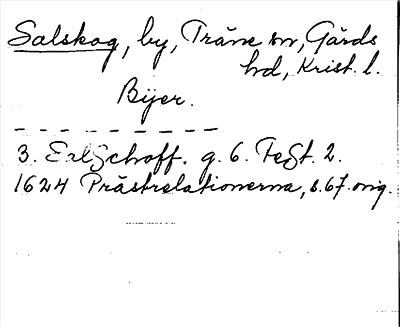 Salskog, by, Träne sn, Gärds
hd, Krist. l.
Bijer.
3. Schoff. g. 6. Fest. 2.
1624 Prästrelationerna, s. 67. orig.